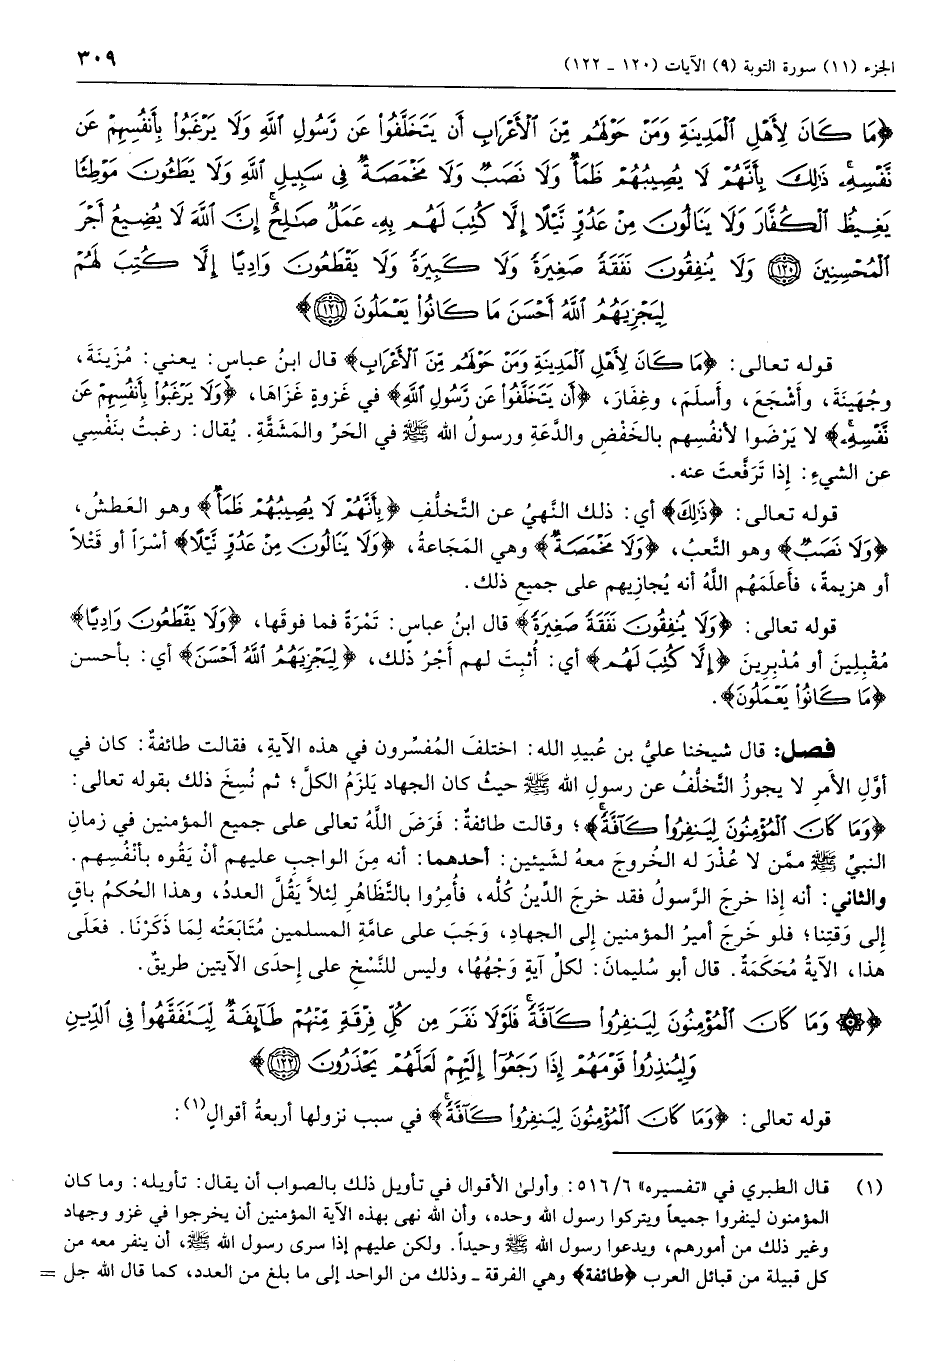 الجزء (١١) سورة التوبة (٩) الآيات (١٢٠ - ١٢٢)
٣٠٩
﴿مَا كَانَ لِأَهْلِ الْمَدِينَةِ وَمَنْ حَوْلَهُم مِّنَ الْأَعْرَابِ أَن يَتَخَلَّفُوا عَن رَّسُولِ اللَّهِ وَلَا يَرْغَبُوا بِأَنفُسِهِمْ عَن
نَّفْسِهِ ۚ ذَٰلِكَ بِأَنَّهُمْ لَا يُصِيبُهُمْ ظَمَأٌ وَلَا نَصَبٌ وَلَا مَخْمَصَةٌ فِي سَبِيلِ اللَّهِ وَلَا يَطَئُونَ مَوْطِئًا
يَغِيظُ الْكُفَّارَ وَلَا يَنَالُونَ مِنْ عَدُوٍّ نَّيْلًا إِلَّا كُتِبَ لَهُم بِهِ عَمَلٌ صَالِحٌ ۚ إِنَّ اللَّهَ لَا يُضِيعُ أَجْرَ
الْمُحْسِنِينَ ﴿١٢٠﴾ وَلَا يُنفِقُونَ نَفَقَةً صَغِيرَةً وَلَا كَبِيرَةً وَلَا يَقْطَعُونَ وَادِيًا إِلَّا كُتِبَ لَهُمْ
لِيَجْزِيَهُمُ اللَّهُ أَحْسَنَ مَا كَانُوا يَعْمَلُونَ ﴿١٢١﴾﴾
قوله تعالى: ﴿مَا كَانَ لِأَهْلِ الْمَدِينَةِ وَمَنْ حَوْلَهُم مِّنَ الْأَعْرَابِ﴾ قال ابنُ عباسٍ: يعني: مُزَينَةَ،
وجُهَينَةَ، وأَشْجَعَ، وأَسلَمَ، وغِفارَ، ﴿أَن يَتَخَلَّفُوا عَن رَّسُولِ اللَّهِ﴾ في غَزوةٍ غَزَاها، ﴿وَلَا يَرْغَبُوا بِأَنفُسِهِمْ عَن
نَّفْسِهِ ۚ﴾ لا يَرْضَوا لأنفُسِهم بالخَفْضِ والدَّعَةِ ورسولُ الله ﷺ في الحَرِّ والمَشَقَّةِ. يُقال: رغبتُ بنَفْسِي
عن الشيءِ: إذا تَرَفَّعتَ عنه.
قوله تعالى: ﴿ذَٰلِكَ﴾ أي: ذلك النَّهيُ عن التَّخلُّفِ ﴿بِأَنَّهُمْ لَا يُصِيبُهُمْ ظَمَأٌ﴾ وهو العَطشُ،
﴿وَلَا نَصَبٌ﴾ وهو التَّعبُ، ﴿وَلَا مَخْمَصَةٌ﴾ وهي المَجَاعةُ، ﴿وَلَا يَنَالُونَ مِنْ عَدُوٍّ نَّيْلًا﴾ أَسْرَاً أو قَتْلاً
أو هزيمةً، فأَعلَمَهُم اللَّهُ أنه يُجازِيهم على جميع ذلك.
قوله تعالى: ﴿وَلَا يُنفِقُونَ نَفَقَةً صَغِيرَةً﴾ قال ابنُ عباسٍ: تَمْرَةً فما فوقَها، ﴿وَلَا يَقْطَعُونَ وَادِيًا﴾
مُقْبِلِينَ أو مُدْبِرِينَ ﴿إِلَّا كُتِبَ لَهُم﴾ أي: أُثبِتَ لهم أَجْرُ ذلك، ﴿لِيَجْزِيَهُمُ اللَّهُ أَحْسَنَ﴾ أي: بأحسن
﴿مَا كَانُوا يَعْمَلُونَ﴾.
فصل: قال شيخنا عليُّ بن عُبيدِ الله: اختلفَ المُفسِّرون في هذه الآيةِ، فقالت طائفةٌ: كان في
أوَّلِ الأمرِ لا يجوزُ التَّخلُّفُ عن رسولِ الله ﷺ حيثُ كان الجهاد يَلزَمُ الكلَّ؛ ثم نُسِخَ ذلك بقوله تعالى:
﴿وَمَا كَانَ الْمُؤْمِنُونَ لِيَنفِرُوا كَافَّةً ۚ﴾؛ وقالت طائفةٌ: فَرَضَ اللَّهُ تعالى على جميع المؤمنين في زمانِ
النبيِّ ﷺ ممَّن لا عُذْرَ له الخُروجَ معهُ لشَيئين: أحدهما: أنه مِنَ الواجبِ عليهم أنْ يَقُوه بأنْفُسِهم.
والثاني: أنه إذا خرجَ الرَّسولُ فقد خرجَ الدِّينُ كُلُّه، فأُمِرُوا بالتَّظَاهُرِ لِئلاَّ يَقُلَّ العددُ، وهذا الحُكمُ باقٍ
إلى وَقتِنا؛ فلو خَرجَ أميرُ المؤمنين إلى الجهادِ، وَجَبَ على عامَّةِ المسلمين مُتَابَعَتُه لِمَا ذَكَرْنَا. فعَلَى
هذا، الآيةُ مُحكَمَةٌ. قال أبو سُليمانَ: لكلِّ آيةٍ وَجْهُهَا، وليس للنَّسْخِ على إحدَى الآيتين طريقٌ.
﴿۞ وَمَا كَانَ الْمُؤْمِنُونَ لِيَنفِرُوا كَافَّةً ۚ فَلَوْلَا نَفَرَ مِن كُلِّ فِرْقَةٍ مِّنْهُمْ طَائِفَةٌ لِّيَتَفَقَّهُوا فِي الدِّينِ
وَلِيُنذِرُوا قَوْمَهُمْ إِذَا رَجَعُوا إِلَيْهِمْ لَعَلَّهُمْ يَحْذَرُونَ ﴿١٢٢﴾﴾
قوله تعالى: ﴿وَمَا كَانَ الْمُؤْمِنُونَ لِيَنفِرُوا كَافَّةً ۚ﴾ في سبب نزولها أربعةُ أقوالٍ(١):
(١) قال الطبري في «تفسيره» ٥١٦/٦: وأولىٰ الأقوال في تأويل ذلك بالصواب أن يقال: تأويله: وما كان
المؤمنون لينفروا جميعاً ويتركوا رسول الله وحده، وأن الله نهى بهذه الآية المؤمنين أن يخرجوا في غزو وجهاد
وغير ذلك من أمورهم، ويدعوا رسول الله ﷺ وحيداً. ولكن عليهم إذا سرى رسول الله ﷺ، أن ينفر معه من
كل قبيلة من قبائل العرب ﴿طائفة﴾ وهي الفرقة - وذلك من الواحد إلى ما بلغ من العدد، كما قال الله جل =